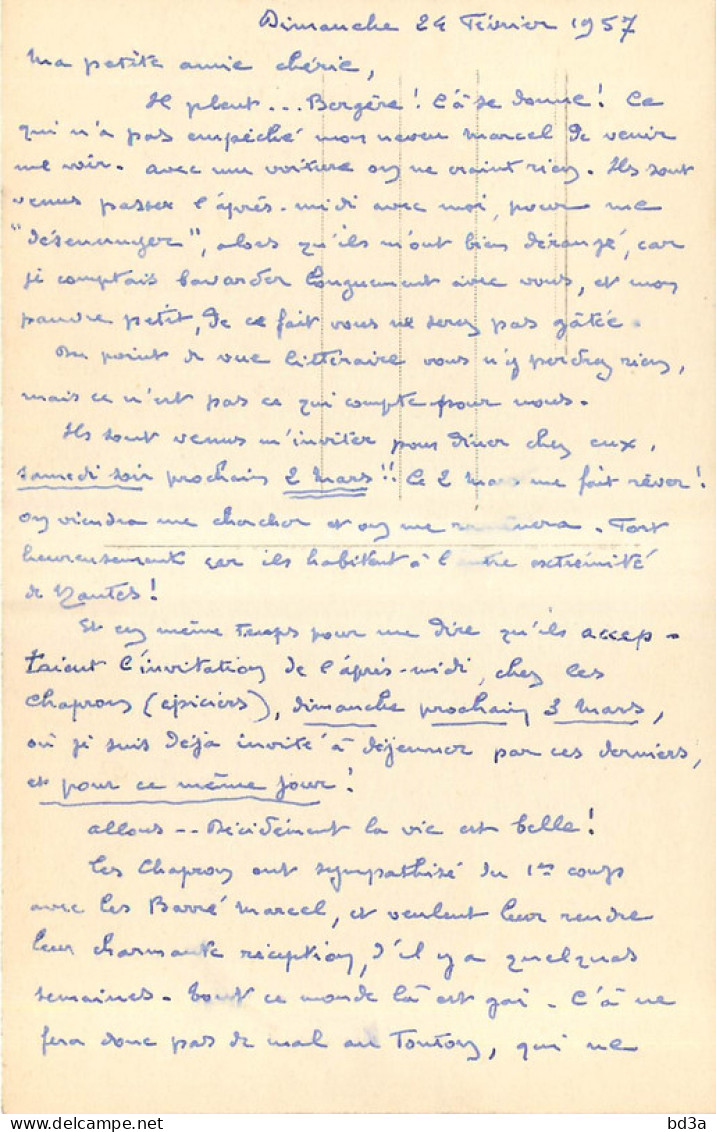 Dimanche 24 Février 1957
Ma petite amie chérie,
Il pleut... Bergère ! Çà se donne ! Ce
qui n'a pas empêché mon neveu Marcel de venir
me voir. avec une voiture on ne craint rien. Ils sont
venus passer l'après-midi avec moi, pour me
"désennuyer", alors qu'ils m'ont bien dérangé, car
je comptais bavarder longuement avec vous, et mon
pauvre petit, de ce fait vous ne serez pas gâtée.
Du point de vue littéraire vous n'y perdrez rien,
mais ce n'est pas ce qui compte pour nous.
Ils sont venus m'inviter pour diner chez eux,
samedi soir prochain 2 Mars !! Ce 2 Mars me fait rêver !
on viendra me chercher et on me ramènera. Fort
heureusement car ils habitent à l'autre extrémité
de Nantes !
Et en même temps pour me dire qu'ils accep-
taient l'invitation de l'après-midi, chez les
Chapron (épiciers), dimanche prochain 3 Mars,
où je suis déjà invité à déjeuner par ces derniers,
et pour ce même jour !
allons -- Décidément la vie est belle !
Les Chapron ont sympathisé du 1er coup
avec les Barré Marcel, et veulent leur rendre
leur charmante réception, d'il y a quelques
semaines. Tout ce monde là est gai. Çà ne
fera donc pas de mal au Tonton, qui ne
bd3a